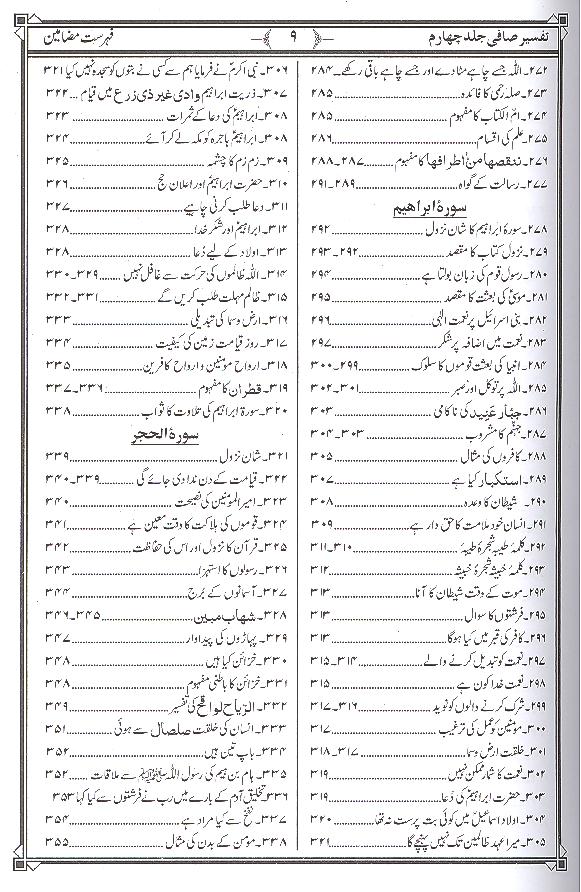 تفسیر صافی جلد چہارم ۹ فہرست مضامین
۲۷۲۔اللہ جسے چاہے مٹا دے اور جسے چاہے باقی رکھے۔۔۲۸۴
۲۷۳۔صلہ رحمی کا فائدہ ۲۸۵
۲۷۴۔امّ الکتاب کا مفہوم ۲۸۵
۲۷۵۔علم کی اقسام ۲۸۶
۲۷۶۔ننقصھا من اطرافھا کا مفہوم ۲۸۷۔۲۸۸
۲۷۷۔رسالت کے گواہ ۲۸۹۔۲۹۱
سورۂ ابراھیم
۲۷۸۔سورۂ ابراہیم کا شان نزول ۲۹۲
۲۷۹۔نزول کتاب کا مقصد ۲۹۲۔۲۹۳
۲۸۰۔رسول قوم کی زبان بولتا ہے ۲۹۴
۲۸۱۔موسیٰ کی بعثت کا مقصد ۲۹۵
۲۸۲۔بنی اسرائیل پر نعمت الٰہی ۲۹۶
۲۸۳۔نعمت میں اضافہ پر شکر ۲۹۷
۲۸۴۔انبیا کی بعثت قوموں کا سلوک ۲۹۹۔۳۰۰
۲۸۵۔اللہ پر توکل اور صبر ۳۰۱۔۳۰۲
۲۸۶۔جبّار عنید کی ناکامی ۳۰۳
۲۸۷۔جہنّم کا مشروب ۳۰۳۔۳۰۴
۲۸۸۔کافروں کی مثال ۳۰۵
۲۸۹۔استکبار کیا ہے ۳۰۷
۲۹۰۔شیطان کا وعدہ ۳۰۸
۲۹۱۔انسان خود ملامت کا حق دار ہے ۳۰۹
۲۹۲۔کلمۂ طیبہ شجرۂ طیبہ ۳۱۰۔۳۱۱
۲۹۳۔کلمۂ خبیثہ شجرۂ خبیثہ ۳۱۲
۲۹۴۔موت کے وقت شیطان کا آنا ۳۱۳
۲۹۵۔فرشتوں کا سوال ۳۱۳
۲۹۶۔کافر کی قبر میں کیا ہوگا ۳۱۳
۲۹۷۔نعمت کو تبدیل کرنے والے ۳۱۴۔۳۱۵
۲۹۸۔نعمت خدا کون ہے ۳۱۵
۲۹۹۔شرک کرنے والوں کو نوید ۳۱۶۔۳۱۷
۳۰۰۔مومنین کو عمل کی ترغیب ۳۱۷
۳۰۱۔خلقت ارض و سما ۳۱۷۔۳۱۸
۳۰۲۔نعمت کا شمار ممکن نہیں ۳۱۹
۳۰۳۔حضرت ابراہیم کی دُعا ۳۱۹
۳۰۴۔اولاد اسماعیل میں کوئی بت پرست نہ تھا ۳۲۰
۳۰۵۔میرا عہد ظالمین تک نہیں پہنچے گا ۳۲۱
۳۰۶۔نبی اکرمؐ نے فرمایا ہم سے کسی نے بتوں کو سجدہ نہیں کیا ۳۲۱
۳۰۷۔ذریت ابراہیم وادی غیر ذی زرع میں قیام ۳۲۲
۳۰۸۔ابراہیم کی دعا کے ثمرات ۳۲۳
۳۰۸۔ابراہیم ہاجرہ کو مکہ لے کر آئے ۳۲۴
۳۰۹۔زم زم کا چشمہ ۳۲۵
۳۱۰۔حضرت ابراہیم اور اعلان حج ۳۲۶
۳۱۱۔دعا طلب کرنی چاہیے ۳۲۷
۳۱۲۔ابراہیم اور شکر خدا ۳۲۸
۳۱۳۔اولاد کے لیے دُعا ۳۲۸
۳۱۴۔اللہ ظالموں کی حرکت سے غافل نہیں ۳۲۹۔۳۳۰
۳۱۵۔ظالم مہلت طلب کریں گے ۳۳۱۔۳۳۲
۳۱۶۔ارض و سما کی تبدیلی ۳۳۳
۳۱۷۔روز قیامت زمین کی کیفیت ۳۳۴
۳۱۸۔ارواح مومنین و ارواح کافرین ۳۳۵
۳۱۹۔قطران کا مفہوم ۳۳۶۔۳۳۷
۳۲۰۔سورۂ ابراہیم کی تلاوت کا ثواب ۳۳۸
سورۂ الحجر
۳۲۱۔شان نزول ۳۳۹
۳۲۲۔قیامت کے دن ندا دی جائے گی ۳۳۹۔۳۴۰
۳۲۳۔امیر المومنین کی نصیحت ۳۴۰
۳۲۴۔قوموں کی ہلاکت کا وقت معین ہے ۳۴۱
۳۲۵۔قرآن کا نزول اور اس کی حفاظت ۳۴۲
۳۲۶۔رسولوں کا استہزا ۳۴۳
۳۲۷۔آسمانوں کے بُرج ۳۴۴
۳۲۸۔شھاب مبین ۳۴۵۔۳۴۶
۳۲۹۔پہاڑوں کی پیداوار ۳۴۷
۳۳۰۔خزائن کیا ہیں ۳۴۸
۳۳۱۔خزائن کا باطنی مفہوم ۳۴۸
۳۳۲۔الریاح لواقح کی تفسیر ۳۴۹
۳۳۳۔انسان کی خلقت صلصال سے ہوئی ۳۵۱
۳۳۴۔باپ تین ہیں ۳۵۲
۳۳۵۔ہام بن ہیم کی رسول اللہ ﷺ سے ملاقات ۳۵۲
۳۳۶۔تخلیق آدم کے بارے میں رب نے فرشتوں سے کیا کہا ۳۵۳
۳۳۷۔نفخ سے کیا مراد ہے ۳۵۴
۳۳۸۔مومن کے بدن کی مثال ۳۵۵